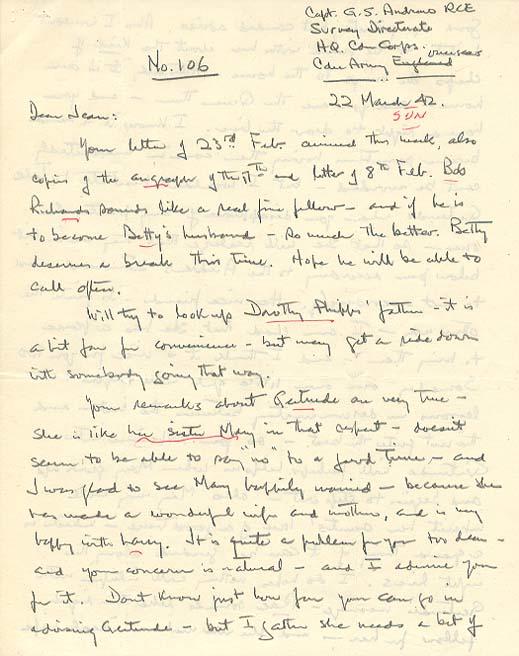 Capt. G. S. Andrews RCE
Survey Directorate
H.Q. Cdn Corps.
Cdn Army England overseas
No. 106
22 March 42.
SUN
Dear Jean:
Your letter of 23rd Feb. arrived this week, also
copies of the airgraph of the 11th and letter of 8th Feb. Bob
Richards sounds like a real fine fellow - and if he is
to become Betty's husband - so much the better. Betty
deserves a break this time. Hope he will be able to
call often.
Will try to look up Dorothy Phipps father - it is
a bit far for convenience - but may get a ride down
with somebody going that way.
Your remarks about Gertrude are very true -
she is like her sister Mary in that respect - doesn't
seem to be able to say "no" to a good time - and
I was glad to see Mary happily married - because she
has made a wonderful wife and mother, and is very
happy with Harry. It is quite a problem for you too dear -
and your concern is natural - and I admire you
for it. Dont know just how far you can go in
advising Gertrude - but I gather she needs a bit of